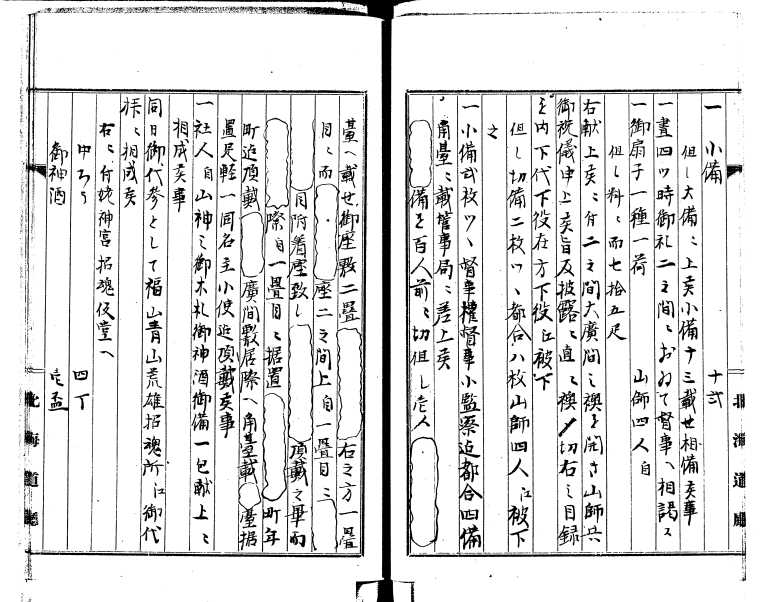 一 小備 十弐
但し大備ニ上矣小備十三載せ相備矣事
一 昼四ツ時御礼二之間ニおゐて督事へ相謁ス
一 御扇子一種一荷 山師四人自
但し料ニ而七拾五疋
右献上矣ニ付二之間大廣間之襖を開き山師共
御祝儀申上矣旨及披露ニ直ニ襖〆切右之目録
を内下代下役在方下役江被下
但し切備二枚ツヽ都合八枚山師四人江被下
之
一 小備弐枚ツヽ督事権督事小監察迄都合四備
角臺ニ載督事局ニ差上矣
備を百人前ニ切但し壱人
臺へ載せ御座敷二畳 右之方一畳
目ニ而 座二之間上自一畳目三
目附着座致し 頂戴之畢而
際自一畳目ニ据置 町年
町迄頂戴 廣間敷居際へ角臺載 臺据
置足軽一同名主小使迄頂戴矣事
一 社人自山神之御木札御神酒御備一包献上ニ
相成矣事
同日御代参として福山青山荒雄招魂所江御代
拝ニ相成矣
右ニ付姥神宮招魂仮堂へ
中ろう 四丁
御神酒 壱盃
北海道廳
北海道廳